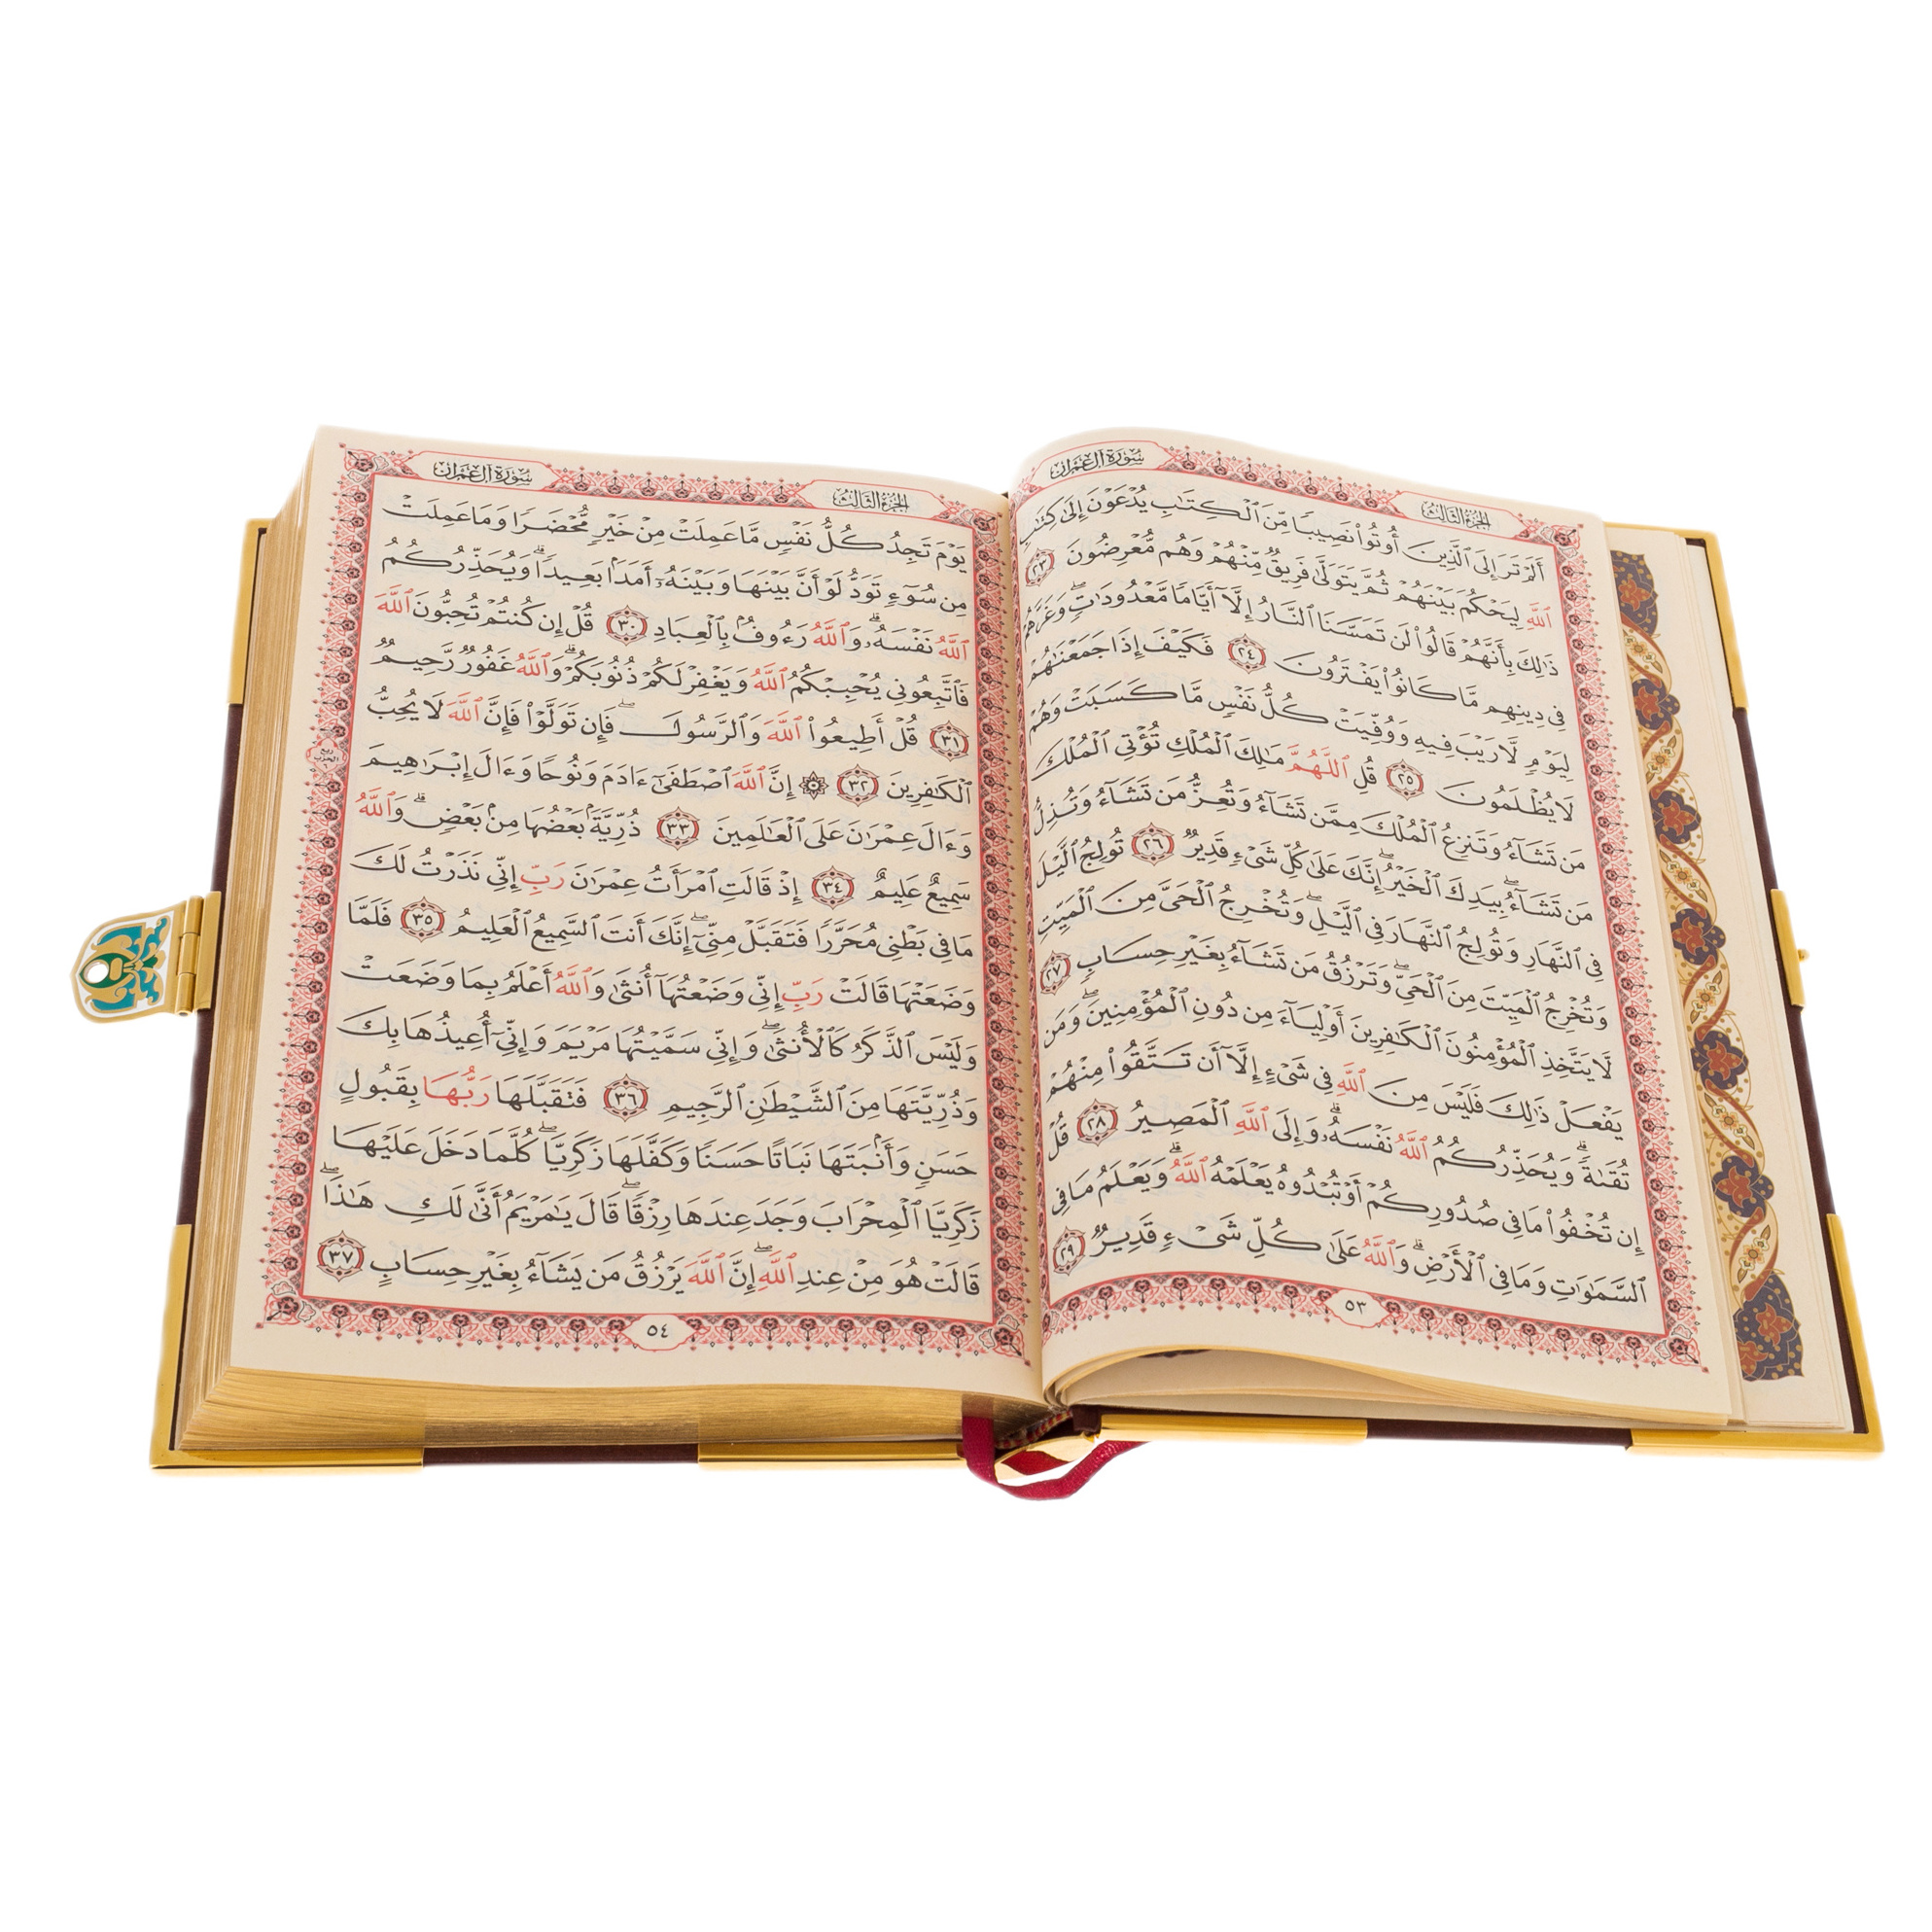 سورة آل عمران
الجزء الثالث
أَلَمْ تَرَ إِلَى ٱلَّذِينَ أُوتُوا۟ نَصِيبًا مِّنَ ٱلْكِتَٰبِ يُدْعَوْنَ إِلَىٰ كِتَٰبِ
ٱللَّهِ لِيَحْكُمَ بَيْنَهُمْ ثُمَّ يَتَوَلَّىٰ فَرِيقٌ مِّنْهُمْ وَهُم مُّعْرِضُونَ ٢٣
ذَٰلِكَ بِأَنَّهُمْ قَالُوا۟ لَن تَمَسَّنَا ٱلنَّارُ إِلَّآ أَيَّامًا مَّعْدُودَٰتٍ ۖ وَغَرَّهُمْ
فِى دِينِهِم مَّا كَانُوا۟ يَفْتَرُونَ ٢٤ فَكَيْفَ إِذَا جَمَعْنَٰهُمْ
لِيَوْمٍ لَّا رَيْبَ فِيهِ وَوُفِّيَتْ كُلُّ نَفْسٍ مَّا كَسَبَتْ وَهُمْ
لَا يُظْلَمُونَ ٢٥ قُلِ ٱللَّهُمَّ مَٰلِكَ ٱلْمُلْكِ تُؤْتِى ٱلْمُلْكَ
مَن تَشَآءُ وَتَنزِعُ ٱلْمُلْكَ مِمَّن تَشَآءُ وَتُعِزُّ مَن تَشَآءُ وَتُذِلُّ
مَن تَشَآءُ ۖ بِيَدِكَ ٱلْخَيْرُ ۖ إِنَّكَ عَلَىٰ كُلِّ شَىْءٍ قَدِيرٌ ٢٦ تُولِجُ ٱلَّيْلَ
فِى ٱلنَّهَارِ وَتُولِجُ ٱلنَّهَارَ فِى ٱلَّيْلِ ۖ وَتُخْرِجُ ٱلْحَىَّ مِنَ ٱلْمَيِّتِ
وَتُخْرِجُ ٱلْمَيِّتَ مِنَ ٱلْحَىِّ ۖ وَتَرْزُقُ مَن تَشَآءُ بِغَيْرِ حِسَابٍ ٢٧
لَّا يَتَّخِذِ ٱلْمُؤْمِنُونَ ٱلْكَٰفِرِينَ أَوْلِيَآءَ مِن دُونِ ٱلْمُؤْمِنِينَ ۖ وَمَن
يَفْعَلْ ذَٰلِكَ فَلَيْسَ مِنَ ٱللَّهِ فِى شَىْءٍ إِلَّآ أَن تَتَّقُوا۟ مِنْهُمْ
تُقَىٰةً ۗ وَيُحَذِّرُكُمُ ٱللَّهُ نَفْسَهُۥ ۗ وَإِلَى ٱللَّهِ ٱلْمَصِيرُ ٢٨ قُلْ
إِن تُخْفُوا۟ مَا فِى صُدُورِكُمْ أَوْ تُبْدُوهُ يَعْلَمْهُ ٱللَّهُ ۗ وَيَعْلَمُ مَا فِى
ٱلسَّمَٰوَٰتِ وَمَا فِى ٱلْأَرْضِ ۗ وَٱللَّهُ عَلَىٰ كُلِّ شَىْءٍ قَدِيرٌ ٢٩
٥٣
سورة آل عمران
الجزء الثالث
يَوْمَ تَجِدُ كُلُّ نَفْسٍ مَّا عَمِلَتْ مِنْ خَيْرٍ مُّحْضَرًا وَمَا عَمِلَتْ
مِن سُوٓءٍ تَوَدُّ لَوْ أَنَّ بَيْنَهَا وَبَيْنَهُۥٓ أَمَدًۢا بَعِيدًا ۗ وَيُحَذِّرُكُمُ
ٱللَّهُ نَفْسَهُۥ ۗ وَٱللَّهُ رَءُوفٌۢ بِٱلْعِبَادِ ٣٠ قُلْ إِن كُنتُمْ تُحِبُّونَ ٱللَّهَ
فَٱتَّبِعُونِى يُحْبِبْكُمُ ٱللَّهُ وَيَغْفِرْ لَكُمْ ذُنُوبَكُمْ ۗ وَٱللَّهُ غَفُورٌ رَّحِيمٌ
٣١ قُلْ أَطِيعُوا۟ ٱللَّهَ وَٱلرَّسُولَ ۖ فَإِن تَوَلَّوْا۟ فَإِنَّ ٱللَّهَ لَا يُحِبُّ
ٱلْكَٰفِرِينَ ٣٢ ۞ إِنَّ ٱللَّهَ ٱصْطَفَىٰٓ ءَادَمَ وَنُوحًا وَءَالَ إِبْرَٰهِيمَ
وَءَالَ عِمْرَٰنَ عَلَى ٱلْعَٰلَمِينَ ٣٣ ذُرِّيَّةًۢ بَعْضُهَا مِنۢ بَعْضٍ ۗ وَٱللَّهُ
سَمِيعٌ عَلِيمٌ ٣٤ إِذْ قَالَتِ ٱمْرَأَتُ عِمْرَٰنَ رَبِّ إِنِّى نَذَرْتُ لَكَ
مَا فِى بَطْنِى مُحَرَّرًا فَتَقَبَّلْ مِنِّىٓ ۖ إِنَّكَ أَنتَ ٱلسَّمِيعُ ٱلْعَلِيمُ ٣٥ فَلَمَّا
وَضَعَتْهَا قَالَتْ رَبِّ إِنِّى وَضَعْتُهَآ أُنثَىٰ وَٱللَّهُ أَعْلَمُ بِمَا وَضَعَتْ
وَلَيْسَ ٱلذَّكَرُ كَٱلْأُنثَىٰ ۖ وَإِنِّى سَمَّيْتُهَا مَرْيَمَ وَإِنِّىٓ أُعِيذُهَا بِكَ
وَذُرِّيَّتَهَا مِنَ ٱلشَّيْطَٰنِ ٱلرَّجِيمِ ٣٦ فَتَقَبَّلَهَا رَبُّهَا بِقَبُولٍ
حَسَنٍ وَأَنۢبَتَهَا نَبَاتًا حَسَنًا وَكَفَّلَهَا زَكَرِيَّا ۖ كُلَّمَا دَخَلَ عَلَيْهَا
زَكَرِيَّا ٱلْمِحْرَابَ وَجَدَ عِندَهَا رِزْقًا ۖ قَالَ يَٰمَرْيَمُ أَنَّىٰ لَكِ هَٰذَا ۖ
قَالَتْ هُوَ مِنْ عِندِ ٱللَّهِ ۖ إِنَّ ٱللَّهَ يَرْزُقُ مَن يَشَآءُ بِغَيْرِ حِسَابٍ ٣٧
ربع
الحزب
٦
٥٤